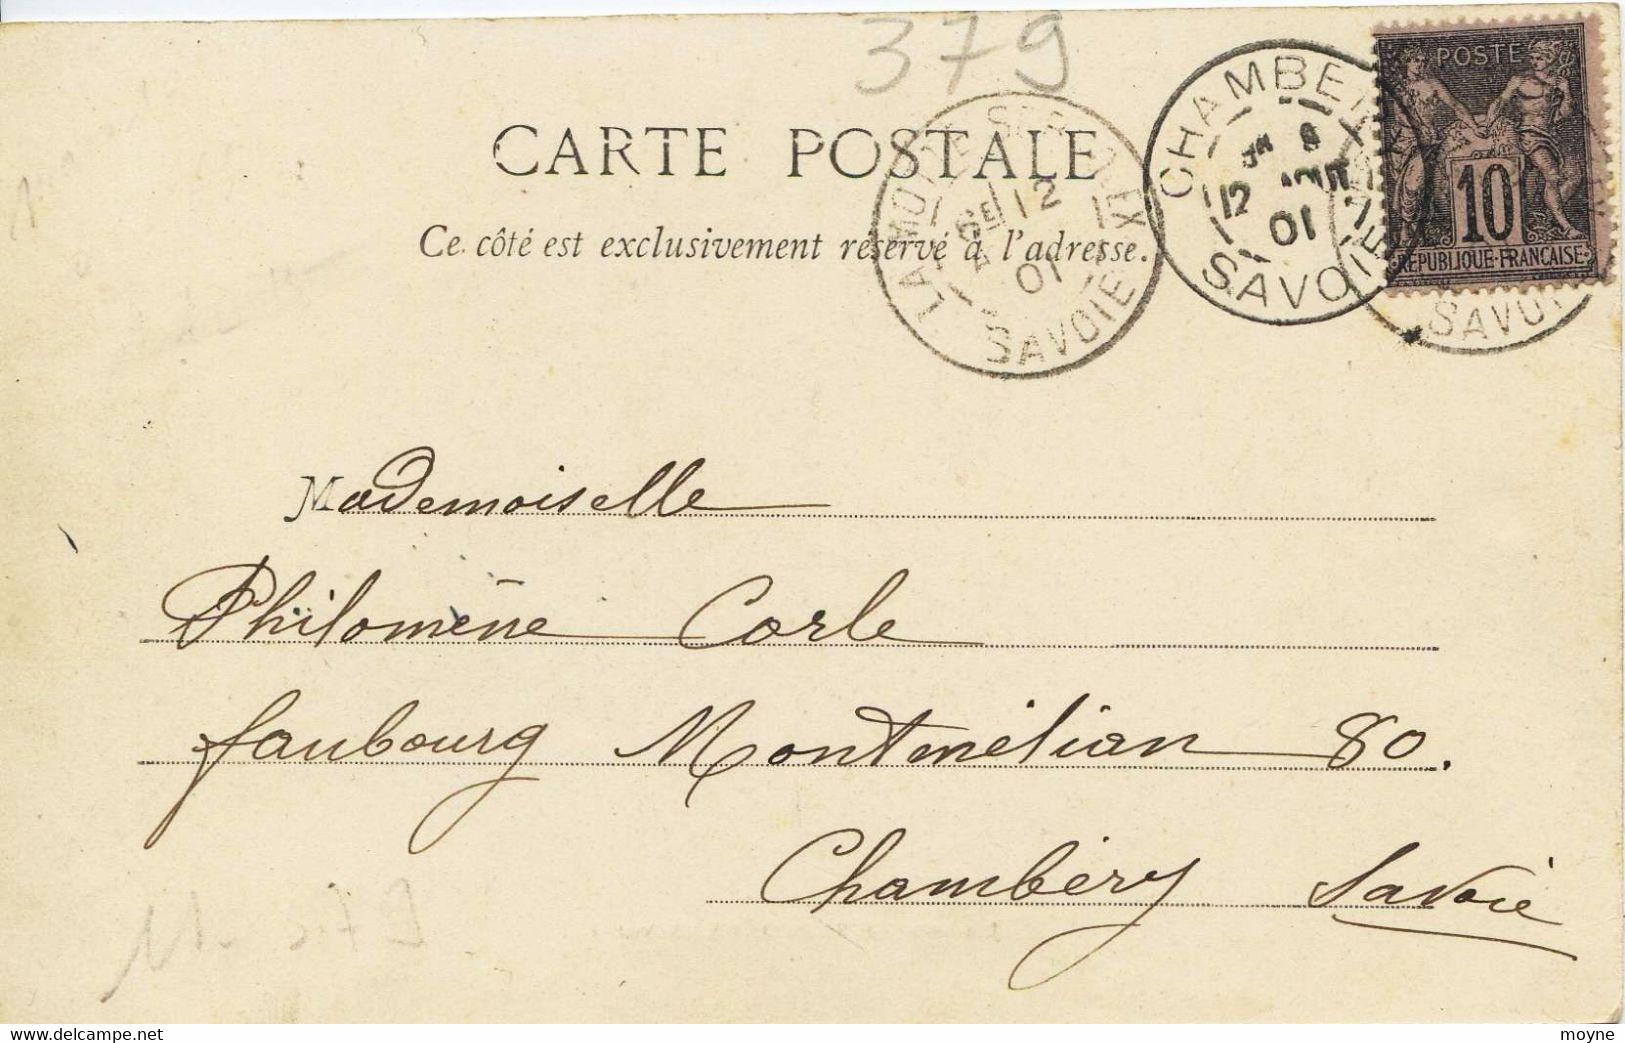 379
CARTE POSTALE
Ce côté est exclusivement réservé à l'adresse.
LA MOTTE SERVOLEX
12
01
SAVOIE
CHAMBERY
8
12 AOUT
01
SAVOIE
SAVOIE
POSTE
10
REPUBLIQUE FRANCAISE
Mademoiselle
Philomène Corle
faubourg Montmélian 80.
Chambéry Savoie
moyne